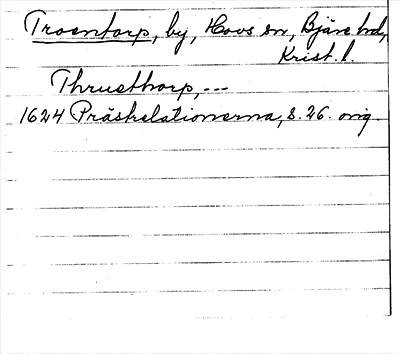 Troentorp, by, Hovs sn, Bjäre hd,
Krist. l.
Thruethorp, ---
1624 Prästrelationerna, s. 26. orig.